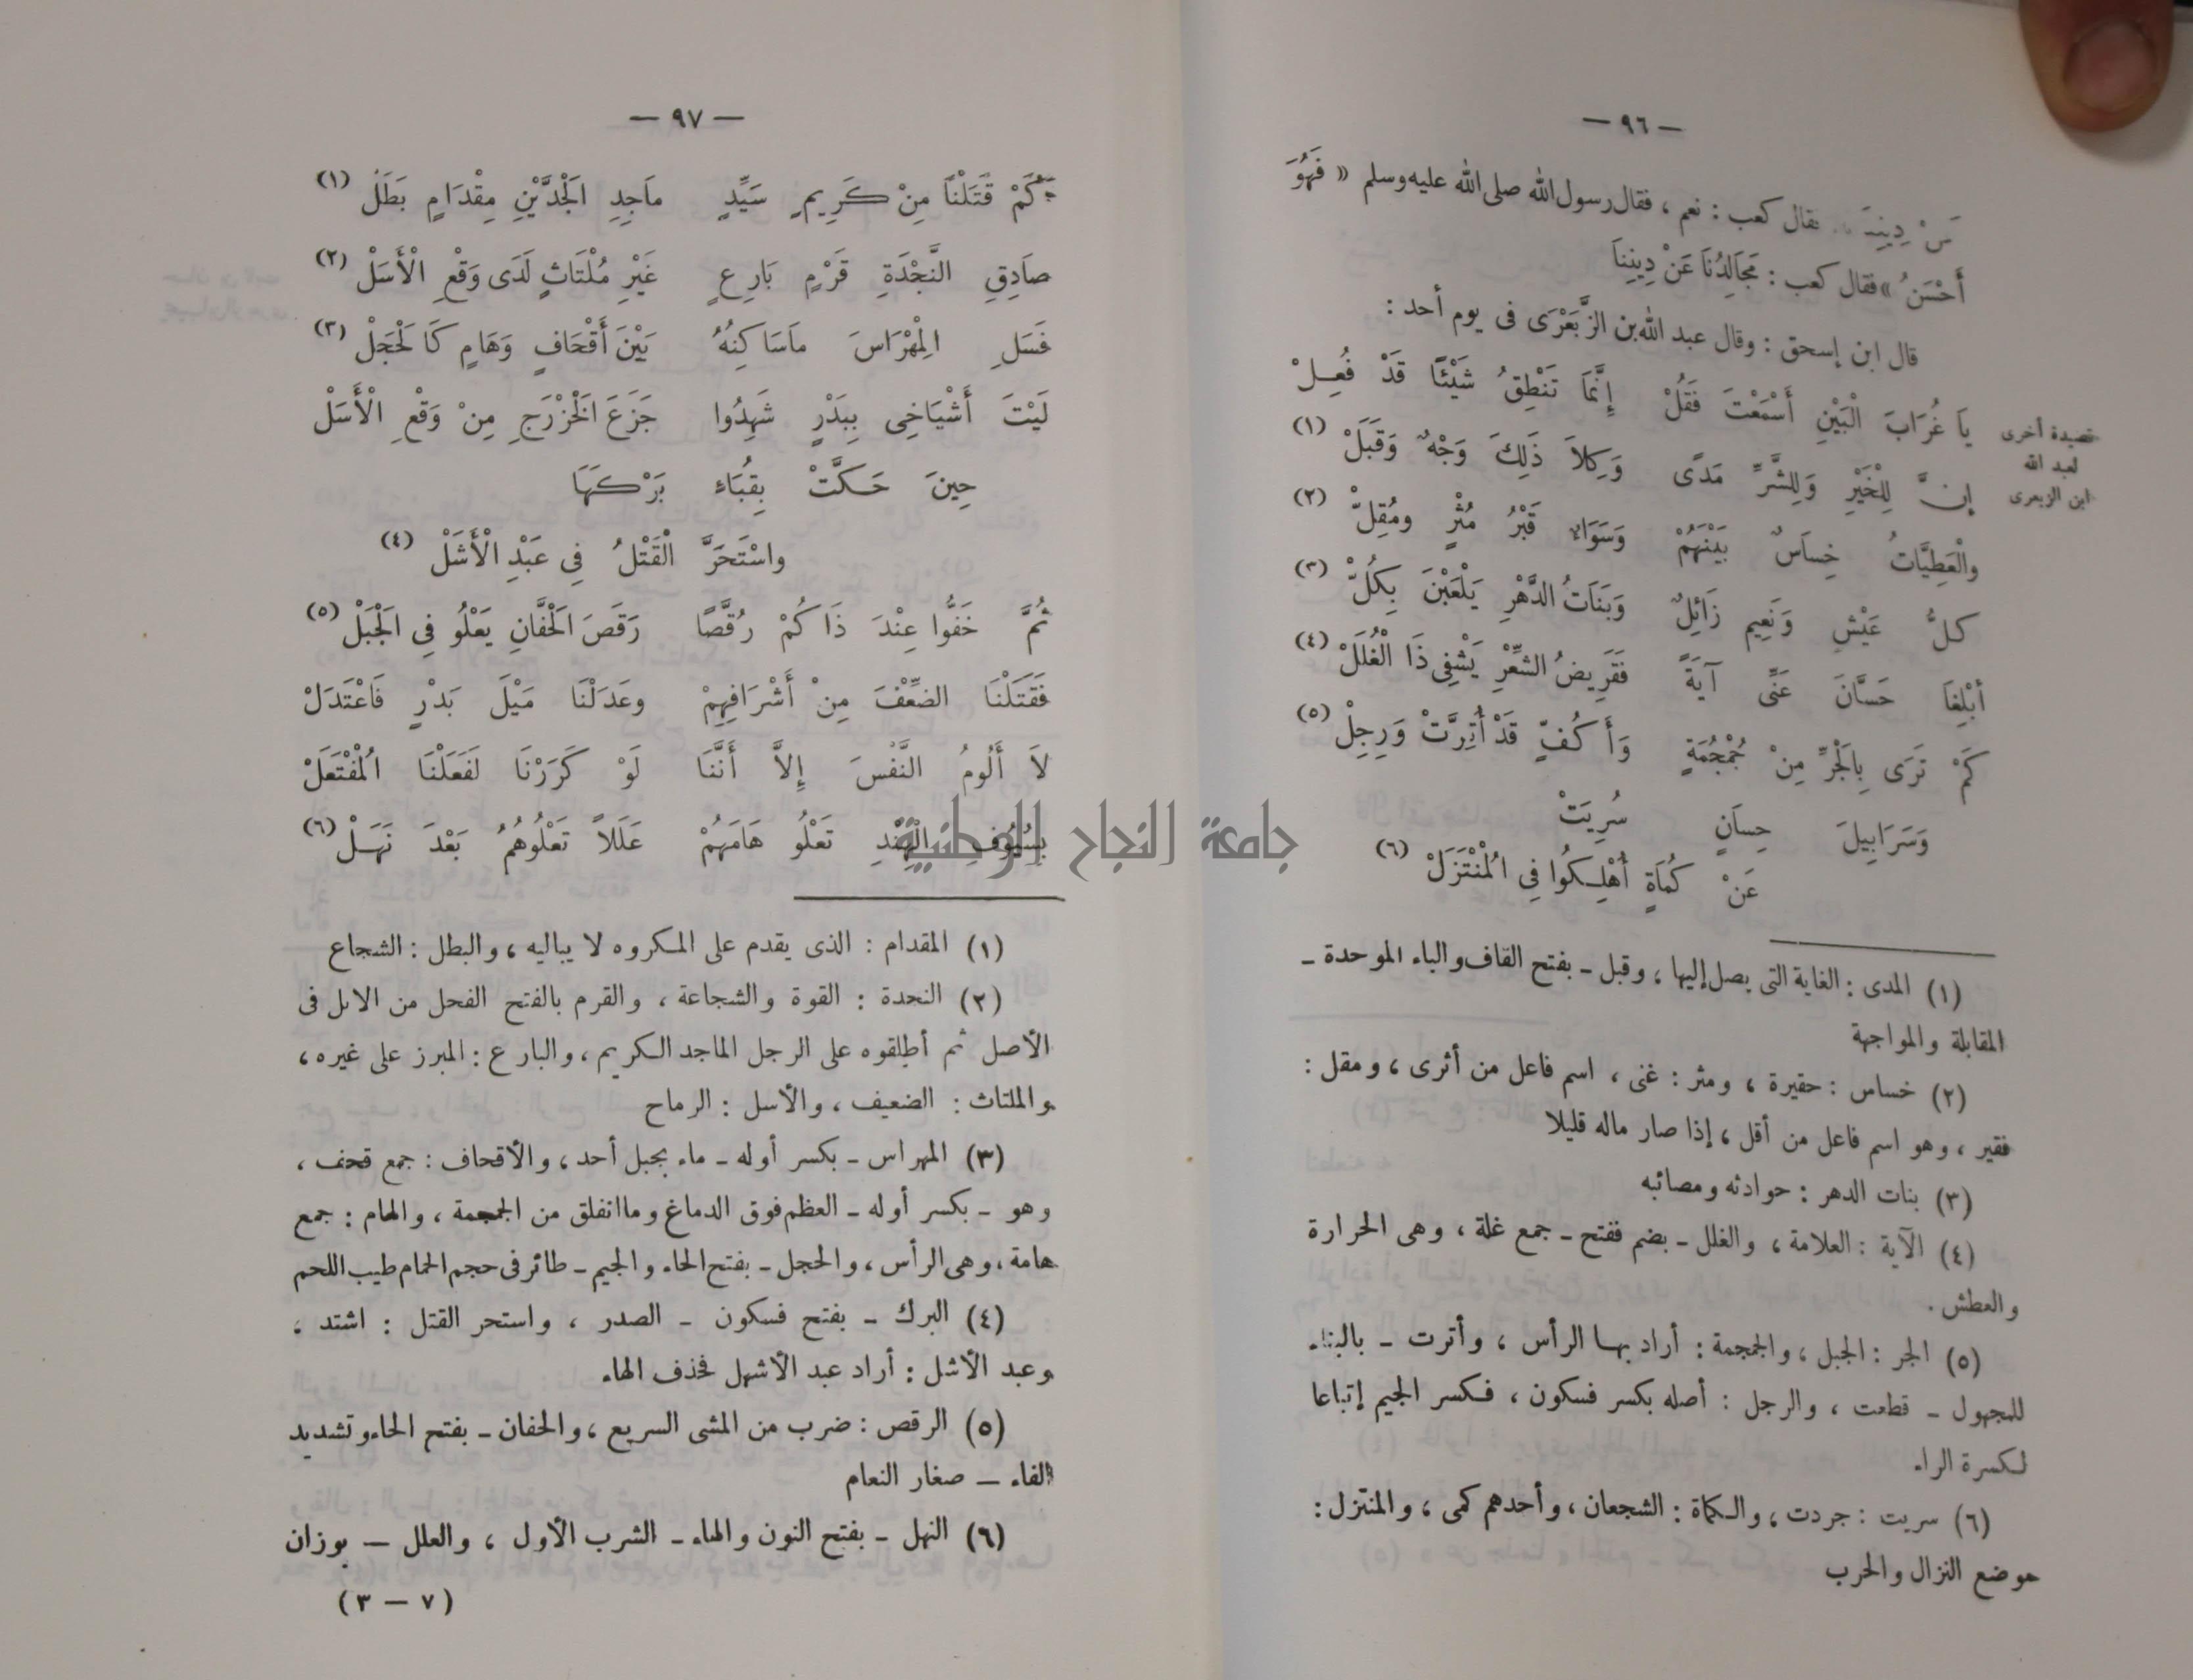 — ٩٦ —
دِينِنَا فقال كعب : نعم ، فقال رسول الله صلى الله عليه وسلم « فَهُوَ
أَحْسَنُ » فقال كعب : مَجَالِدُنَا عَنْ دِينِنَا
قال ابن إسحق : وقال عبد الله بن الزَّبَعْرَى فى يوم أحد :
يَا غُرَابَ الْبَيْنِ أَسْمَعْتَ فَقُلْ إِنَّمَا تَنْطِقُ شَيْئًا قَدْ فُعِلْ
قصيدة أخرى
لعبد الله
ابن الزبعرى
إِنَّ لِلْخَيْرِ وَلِلشَّرِّ مَدًى وَكِلاَ ذَلِكَ وَجْهٌ وَقَبَلْ (١)
والْعَطِيَّاتُ خِسَاسٌ بَيْنَهُمْ وَسَوَاءٌ قَبْرُ مُثْرٍ ومُقِلّْ (٢)
كلُّ عَيْشٍ وَنَعِيمٍ زَائِلٌ وَبَنَاتُ الدَّهْرِ يَلْعَبْنَ بِكُلّْ (٣)
أَبْلِغَا حَسَّانَ عَنِّى آيَةً فَقَرِيضُ الشِّعْرِ يَشْفِى ذَا الْغُلَلْ (٤)
كَمْ تَرَى بِالْجَرِّ مِنْ جُمْجُمَةٍ وَأَكُفٍّ قَدْ أُتِرَّتْ وَرِجِلْ (٥)
وَسَرَابِيلَ حِسَانٍ سُرِيَتْ
عَنْ كُمَاةٍ أُهْلِكُوا فِى الْمُنْتَزَلْ (٦)
(١) المدى : الغاية التى يصل إليها ، وقبل ـ بفتح القاف والباء الموحدة ـ
المقابلة والمواجهة
(٢) خساس : حقيرة ، ومثر : غنى ، اسم فاعل من أثرى ، ومقل :
فقير ، وهو اسم فاعل من أقل ، إذا صار ماله قليلا
(٣) بنات الدهر : حوادثه ومصائبه
(٤) الآية : العلامة ، والغلل ـ بضم ففتح ـ جمع غلة ، وهى الحرارة
والعطش .
(٥) الجر : الجبل ، والجمجمة : أراد بها الرأس ، وأترت ـ بالبناء
للمجهول ـ قطعت ، والرجل : أصله بكسر فسكون ، فكسر الجيم إتباعا
لكسرة الراء
(٦) سريت : جردت ، والكماة : الشجعان ، وأحدهم كمى ، والمنتزل :
موضع النزال والحرب
— ٩٧ —
كَمْ قَتَلْنَا مِنْ كَرِيمٍ سَيِّدٍ مَاجِدِ الْجَدَّيْنِ مِقْدَامٍ بَطَلْ (١)
صَادِقِ النَّجْدَةِ قَرْمٍ بَارِعٍ غَيْرِ مُلْتَاثٍ لَدَى وَقْعِ الْأَسَلْ (٢)
فَسَلِ الْمِهْرَاسَ مَاسَاكِنُهُ بَيْنَ أَقْحَافٍ وَهَامٍ كَالْحَجَلْ (٣)
لَيْتَ أَشْيَاخِى بِبَدْرٍ شَهِدُوا جَزَعَ الْخَزْرَجِ مِنْ وَقْعِ الْأَسَلْ
حِينَ حَكَّتْ بِقُبَاءٍ بَرْكَهَا
واسْتَحَرَّ الْقَتْلُ فِى عَبْدِ الْأَشَلْ (٤)
ثُمَّ خَفُّوا عِنْدَ ذَاكُمْ رُقَّصًا رَقَصَ الْحَفَّانِ يَعْلُو فِى الْجَبَلْ (٥)
فَقَتَلْنَا الضِّعْفَ مِنْ أَشْرَافِهِمْ وعَدَلْنَا مَيْلَ بَدْرٍ فَاعْتَدَلْ
لاَ أَلُومُ النَّفْسَ إِلاَّ أَنَّنَا لَوْ كَرَرْنَا لَفَعَلْنَا الْمُفْتَعَلْ
بِسُيُوفِ الْهِنْدِ تَعْلُو هَامَهُمْ عَلَلاً تَعْلُوهُمُ بَعْدَ نَهَلْ (٦)
جامعة النجاح الوطنية
(١) المقدام : الذى يقدم على المكروه لا يباليه ، والبطل : الشجاع
(٢) النجدة : القوة والشجاعة ، والقرم بالفتح الفحل من الابل فى
الأصل ثم أطلقوه على الرجل الماجد الكريم ، والبارع : المبرز على غيره ،
والملتاث : الضعيف ، والأسل : الرماح
(٣) المهراس ـ بكسر أوله ـ ماء بجبل أحد ، والأقحاف : جمع قحف ،
وهو ـ بكسر أوله ـ العظم فوق الدماغ وما انفلق من الجمجمة ، والهام : جمع
هامة ، وهى الرأس ، والحجل ـ بفتح الحاء والجيم ـ طائر فى حجم الحمام طيب اللحم
(٤) البرك ـ بفتح فسكون ـ الصدر ، واستحر القتل : اشتد ،
وعبد الأشل : أراد عبد الأشهل فحذف الهاء
(٥) الرقص : ضرب من المشى السريع ، والحفان ـ بفتح الحاء وتشديد
الفاء — صغار النعام
(٦) النهل ـ بفتح النون والهاء ـ الشرب الأول ، والعلل — بوزان
( ٧ — ٣ )